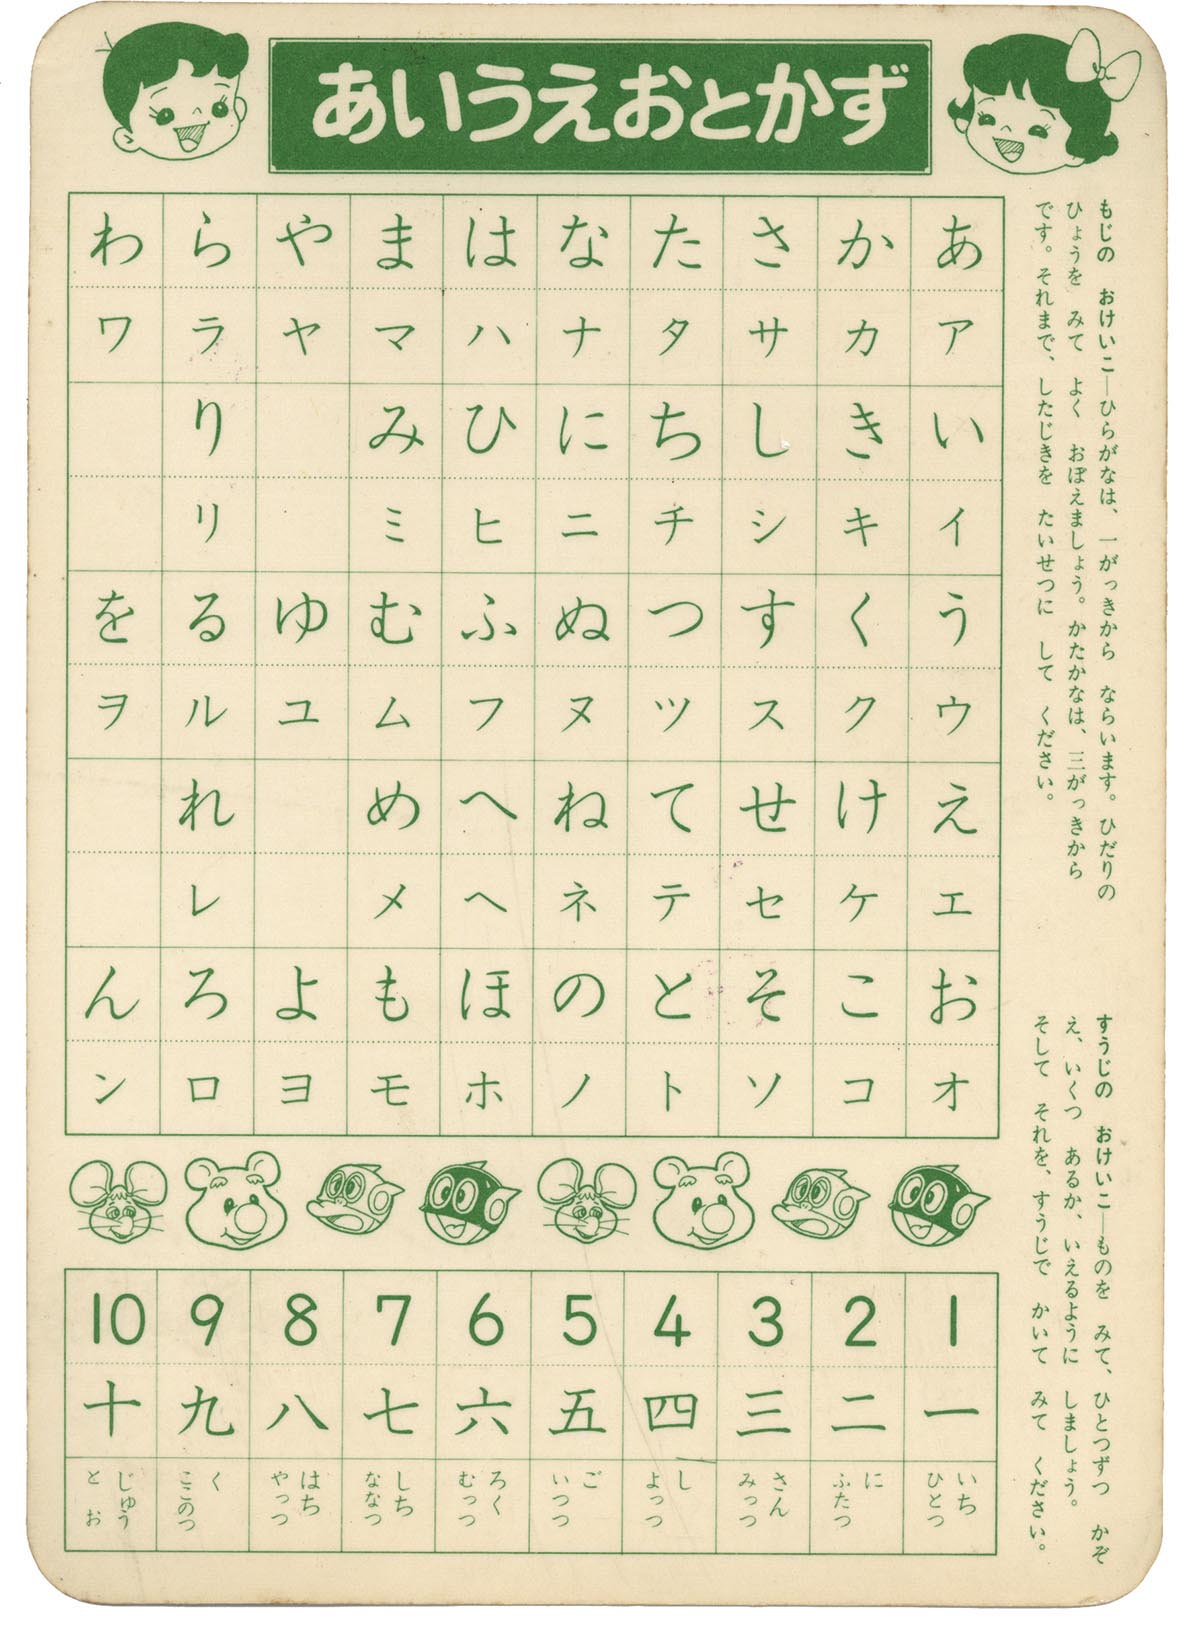 あいうえおとかず
もじの　おけいこ―ひらがなは、一がっきから　ならいます。ひだりの
ひょうを　みて　よく　おぼえましょう。かたかなは、三がっきから
です。それまで、したじきを　たいせつに　して　ください。
わ ら や ま は な た さ か あ
ワ ラ ヤ マ ハ ナ タ サ カ ア
り み ひ に ち し き い
リ ミ ヒ ニ チ シ キ イ
を る ゆ む ふ ぬ つ す く う
ヲ ル ユ ム フ ヌ ツ ス ク ウ
れ め へ ね て せ け え
レ メ ヘ ネ テ セ ケ エ
ん ろ よ も ほ の と そ こ お
ン ロ ヨ モ ホ ノ ト ソ コ オ
すうじの　おけいこ―ものを　みて、ひとつずつ　かぞ
え、いくつ　あるか、いえるように　しましょう。
そして　それを、すうじで　かいて　みて　ください。
10 9 8 7 6 5 4 3 2 1
十 九 八 七 六 五 四 三 二 一
じゅう く はち しち ろく ご し さん に いち
とお ここのつ やっつ ななつ むっつ いつつ よっつ みっつ ふたつ ひとつ